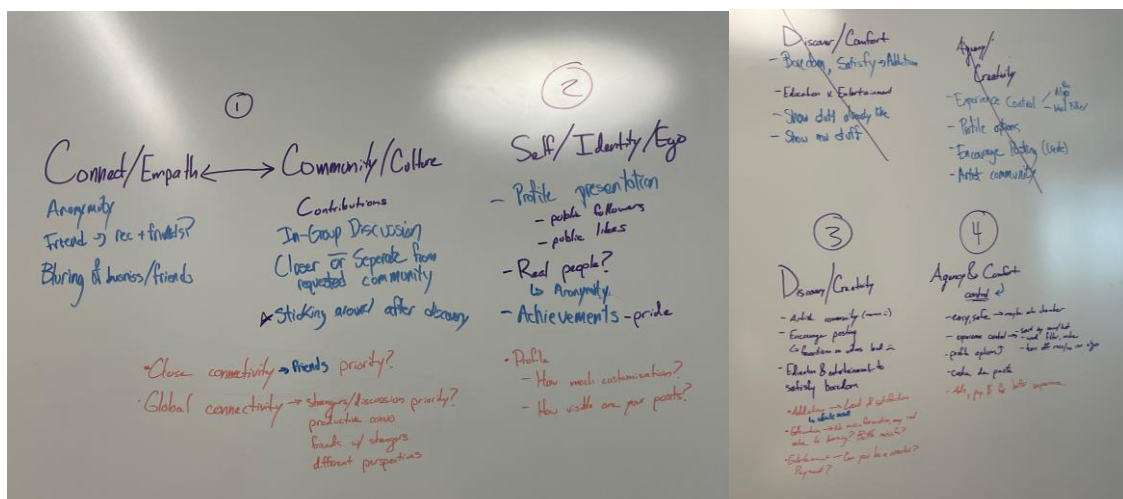 ①
Connect/Empath ↔ Community/Culture
Anonymity
Friend → rec + friends?
Bluring of business/friends
Contributions
In-Group Discussion
Closer or Seperate from
requested community
Sticking around after discovery
• Close connectivity → friends priority?
• Global connectivity → strangers/discussion priority?
productive convo
friends w/ strangers
different perspectives
②
Self/Identity/Ego
- Profile presentation
- public followers
- public likes
- Real people?
↳ Anonymity
- Achievements - pride
• Profile
- How much customization?
- How visible are your posts?
Discover/Comfort
- Boredom, Satisfy → Addiction
- Education x Entertainment
- Show stuff already like
- Show new stuff
Agency/
Creativity
- Experience Control
- Profile options
- Encourage Posting
- Artist community
③
Discovery/Creativity
- Artist community
- Encourage posting
- Education & entertainment to
satisfy boredom
• Addiction → Limit of satisfaction
↳ infinite scroll
• Education →
• Entertainment - Can you be a creator?
Payment?
④
Agency & Comfort
control
- easy, safe →
- experience control →
- profile options